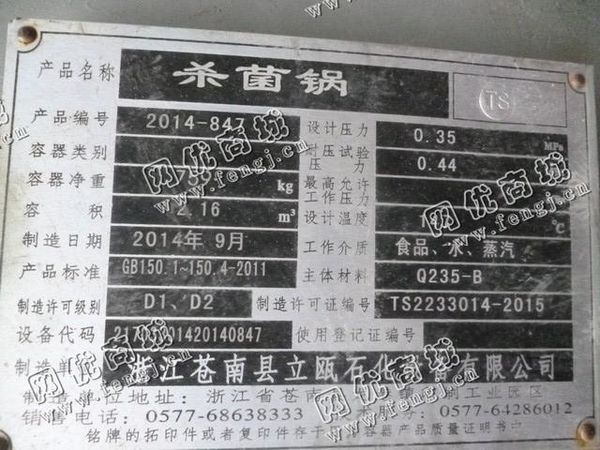 产品名称 杀菌锅 TS
产品编号 2014-847 设计压力 0.35 MPa
容器类别 耐压试验压力 0.44
容器净重 kg 最高允许工作压力
容积 2.16 m³ 设计温度 ℃
制造日期 2014年 9月 工作介质 食品、水、蒸汽
产品标准 GB150.1~150.4-2011 主体材料 Q235-B
制造许可级别 D1、D2 制造许可证编号 TS2233014-2015
设备代码 01420140847 使用登记证编号
制造单 浙江苍南县立瓯石化 有限公司
制造单位地址: 浙江省苍南 刷工业园区
销售电话: 0577-68638333 0577-64286012
铭牌的拓印件或者复印件存于 容器产品质量证明书中
网优商城
www.fengj.cn
网优商城
www.fengj.cn
网优商城
www.fengj.cn
网优商城
www.fengj.cn